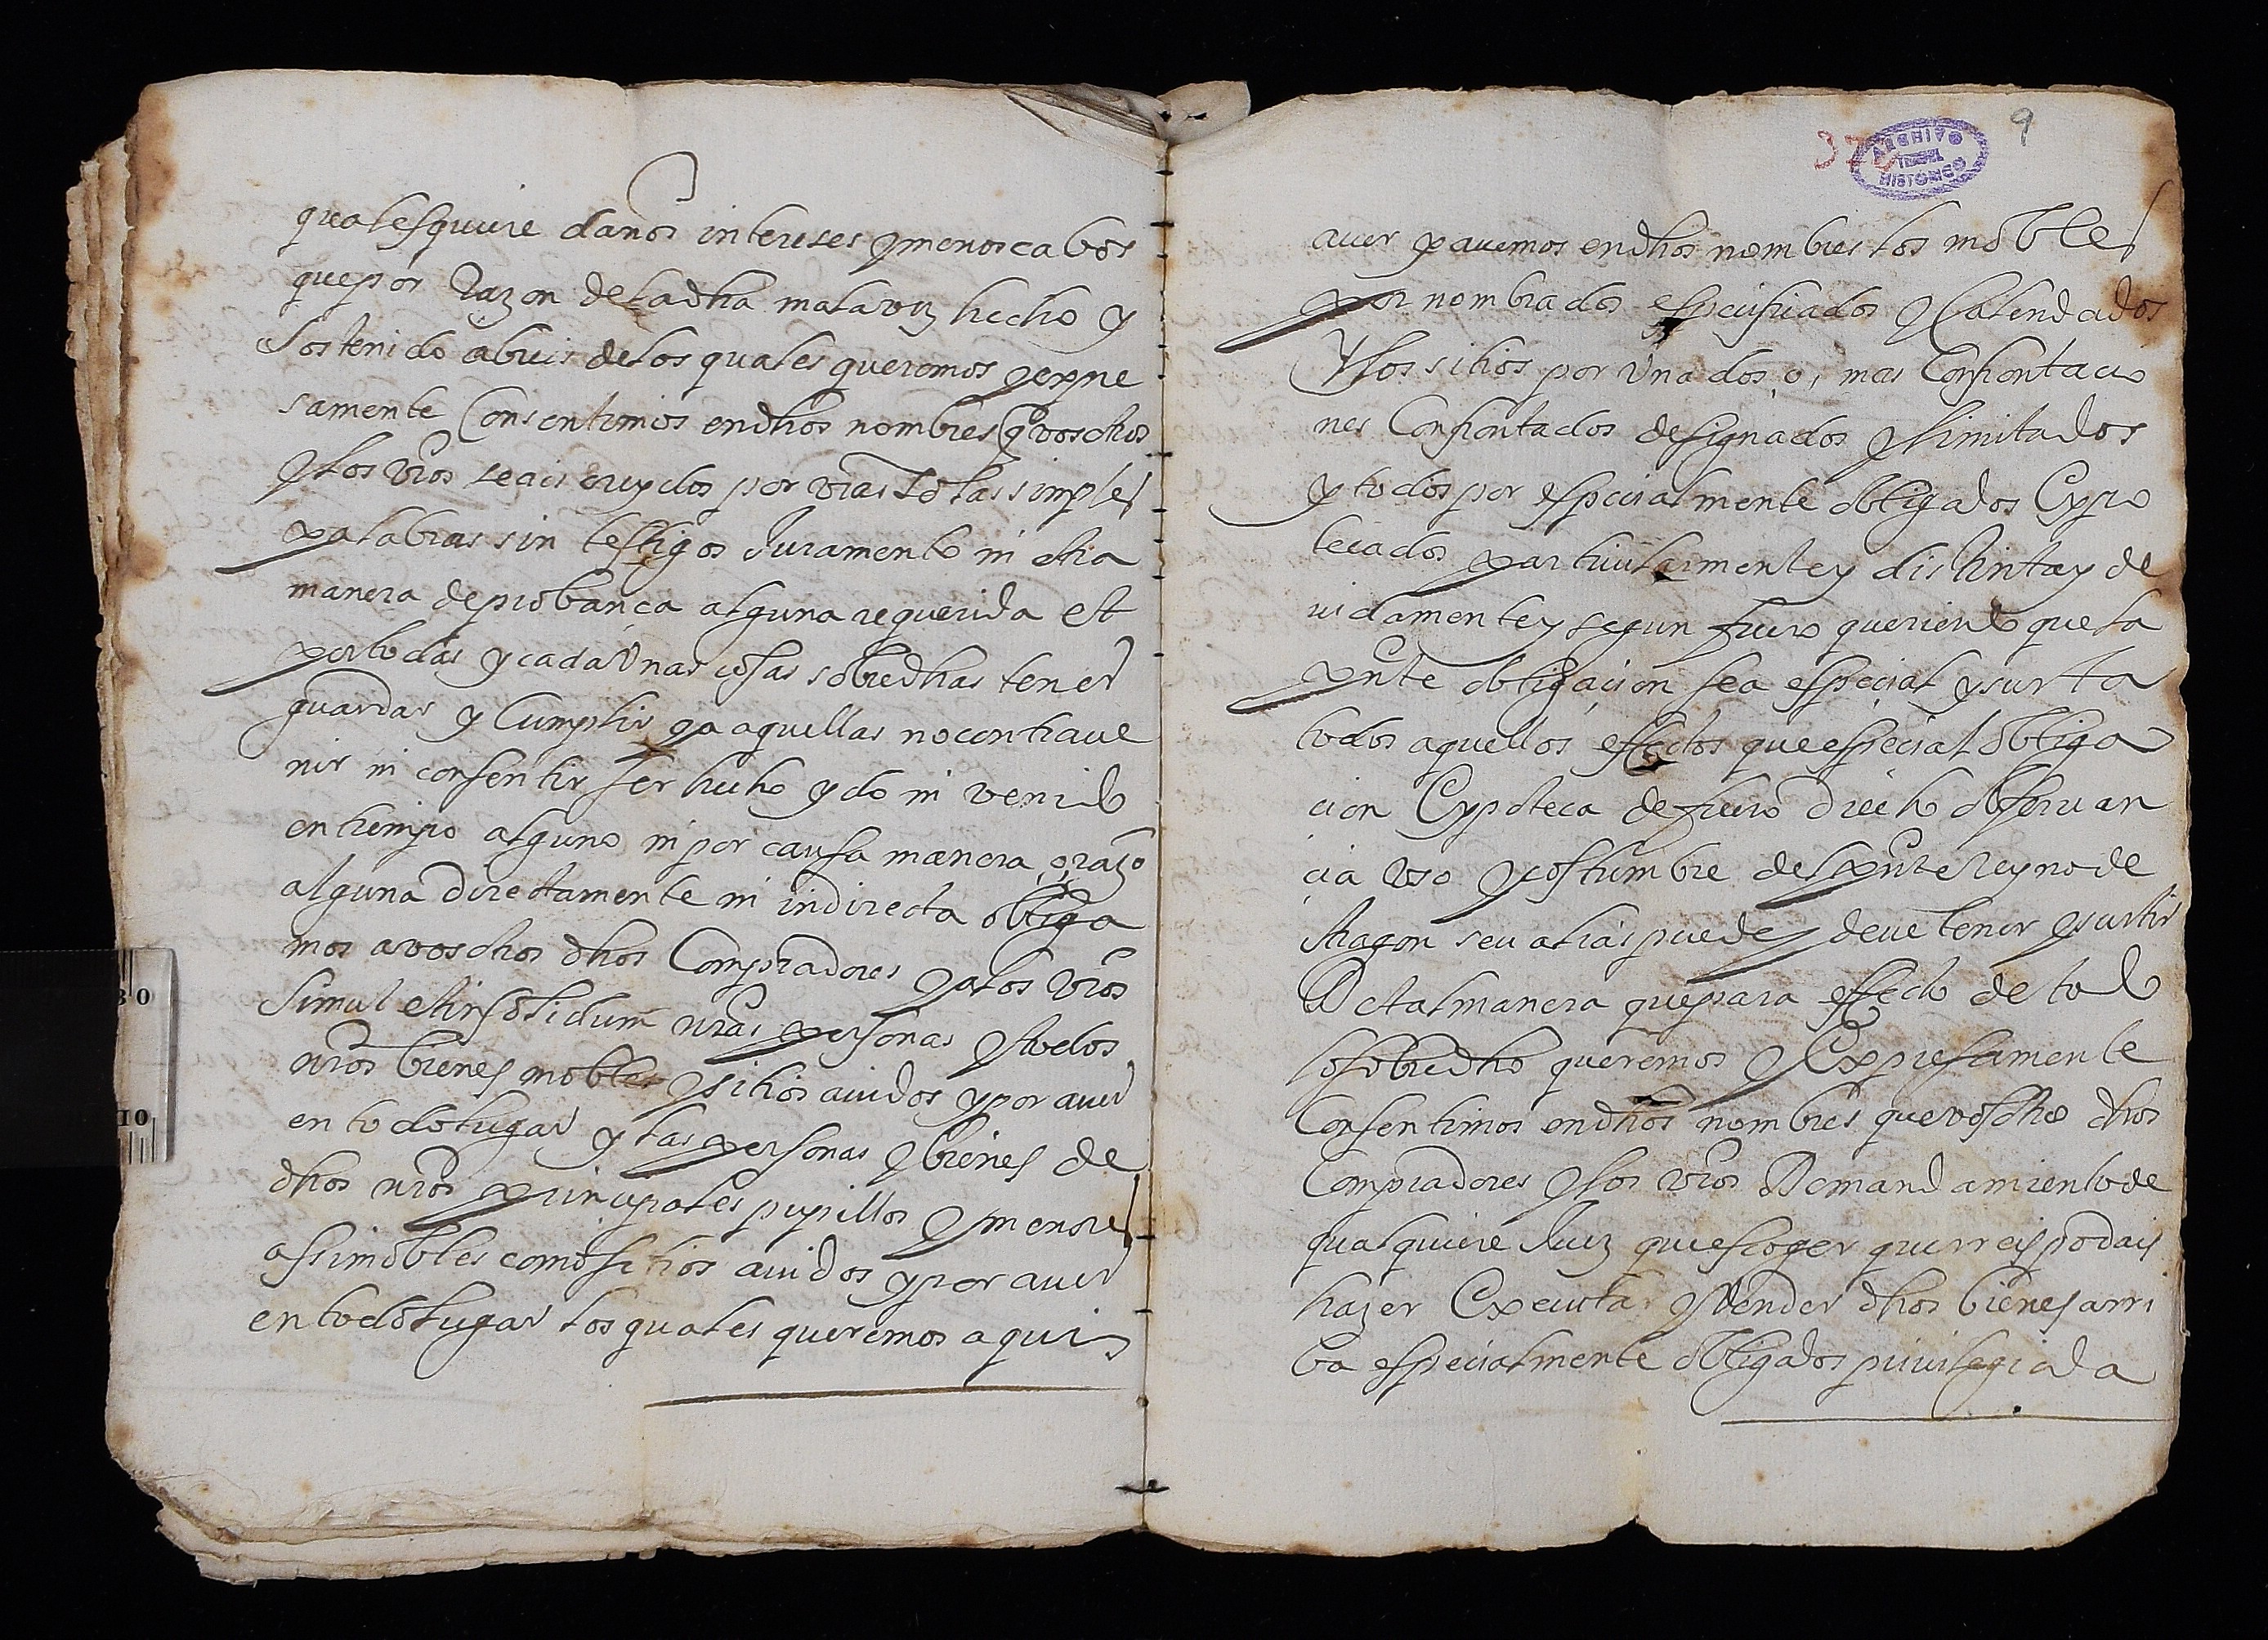 qualesquiere daños intereses y menoscabos
que por Razon de la dha mala voz hecho y
sostenido abreis de los quales queremos y expre
samente Consentimos en dhos nombres q vosotros
y los vros seais creydos por vras solas simples
palabras sin testigos Juramento ni otra
manera de probança alguna requerida et
por todas y cada Unas cosas sobredhas tener
guardar y Cumplir y a aquellas no contraue
nir ni consentir ser hecho ydo ni venido
en tiempo alguno ni por causa manera o razo
alguna directamente ni indirecta obliga
mos a vosotros dhos Compradores y a los vros
Simul et insolidum nras personas y todos
nros bienes mobles y sitios auidos y por auer
en todo lugar y las personas y bienes de
dhos nros principales pupillos y menores
assi mobles como sitios auidos y por auer
en todo lugar los quales queremos aqui
9
ARCHIVO
HISTORICO
auer y auemos en dhos nombres los mobles
por nombrados especificados y Calendados
Y los sitios por Una dos, o, mas Confrontacio
nes Confrontados designados y limitados
y todos por especialmente obligados Cypo
tecados particularmente y distinta y de
uidamente y segun fuero queriendo que la
pnte obligacion sea especial y surta
todos aquellos effectos que especial obliga
cion Cypoteca de fuero drecho obseruan
cia uso y costumbre del pnte Reyno de
Aragon seu alias puede y deue tener y surtir
De tal manera que para effecto de todo
lo sobredho queremos y Expresamente
Consentimos en dhos nombres que vosotros dhos
Compradores y los vros De mandamiento de
qualquiere Juez que escoger querreis podais
hazer Executar y Vender dhos bienes arri
ba especialmente obligados priuilegiada